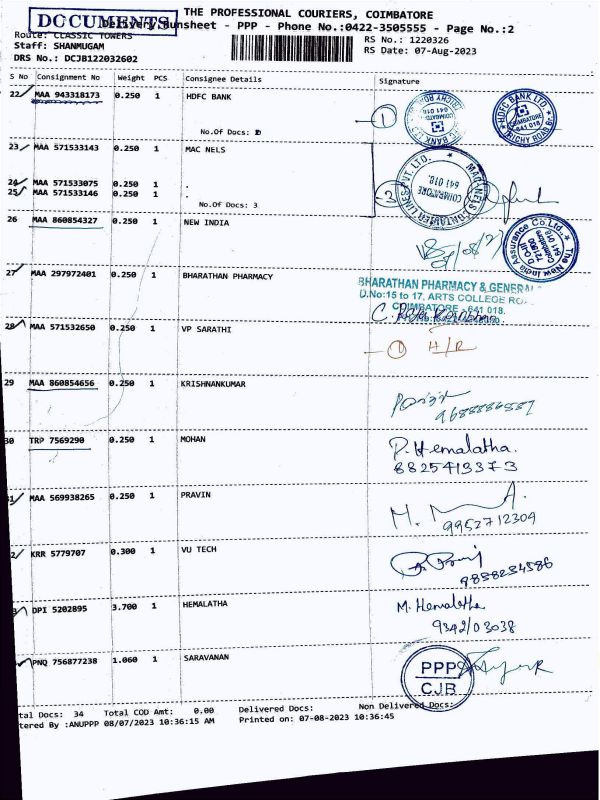 THE PROFESSIONAL COURIERS, COIMBATORE
DOCUMENTS
Delivery Runsheet - PPP - Phone No.:0422-3505555 - Page No.:2
Route: CLASSIC TOWERS
RS No.: 1220326
Staff: SHANMUGAM
RS Date: 07-Aug-2023
DRS No.: DCJB122032602
S No Consignment No Weight PCS Consignee Details Signature
22 MAA 943318173 0.250 1 HDFC BANK
No.Of Docs:
1
HDFC BANK LTD. COIMBATORE 641 018
23 MAA 571533143 0.250 1 MAC NELS
24 MAA 571533075 0.250 1 .
25 MAA 571533146 0.250 1 .
No.Of Docs: 3
3
COIMBATORE 641 018.
26 MAA 860854327 0.250 1 NEW INDIA
The New India Assurance Co.Ltd.,
27 MAA 297972401 0.250 1 BHARATHAN PHARMACY
BHARATHAN PHARMACY & GENERAL
D.No:15 to 17, ARTS COLLEGE RO
COIMBATORE - 641 018.
28 MAA 571532650 0.250 1 VP SARATHI
1 H/R
29 MAA 860854656 0.250 1 KRISHNANKUMAR
30 TRP 7569290 0.250 1 MOHAN
P. Hemalatha.
8825413373
1 MAA 569938265 0.250 1 PRAVIN
9952712309
2 KRR 5779707 0.300 1 VU TECH
9858234586
DPI 5202895 3.700 1 HEMALATHA
M. Hemalatha
9342103038
PNQ 756877238 1.060 1 SARAVANAN
PPP
CJB
tal Docs: 34 Total COD Amt: 0.00 Delivered Docs: Non Delivered Docs:
tered By :ANUPPP 08/07/2023 10:36:15 AM Printed on: 07-08-2023 10:36:45